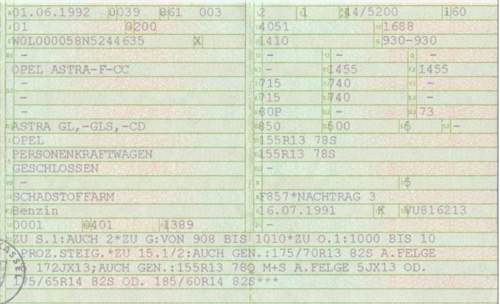 01.06.1992 0039 861 003
01 0200
W0L000058N5244635 X
-
OPEL ASTRA-F-CC
-
-
-
ASTRA GL,-GLS,-CD
OPEL
PERSONENKRAFTWAGEN
GESCHLOSSEN
-
SCHADSTOFFARM
Benzin
0001 0401 1389
2 1 44/5200 160
4051 1688
1410 930-930
- - -
- 1455 1455
715 740 -
715 740 -
80P - 73
850 600 5 -
155R13 78S
155R13 78S
-
- 5
F857*NACHTRAG 3
16.07.1991 K VU816213
ZU S.1:AUCH 2*ZU G:VON 908 BIS 1010*ZU O.1:1000 BIS 10
PROZ.STEIG.*ZU 15.1/2:AUCH GEN.:175/70R13 82S A.FELGE
172JX13;AUCH GEN.:155R13 78Q M+S A.FELGE 5JX13 OD.
175/65R14 82S OD. 185/60R14 82S***